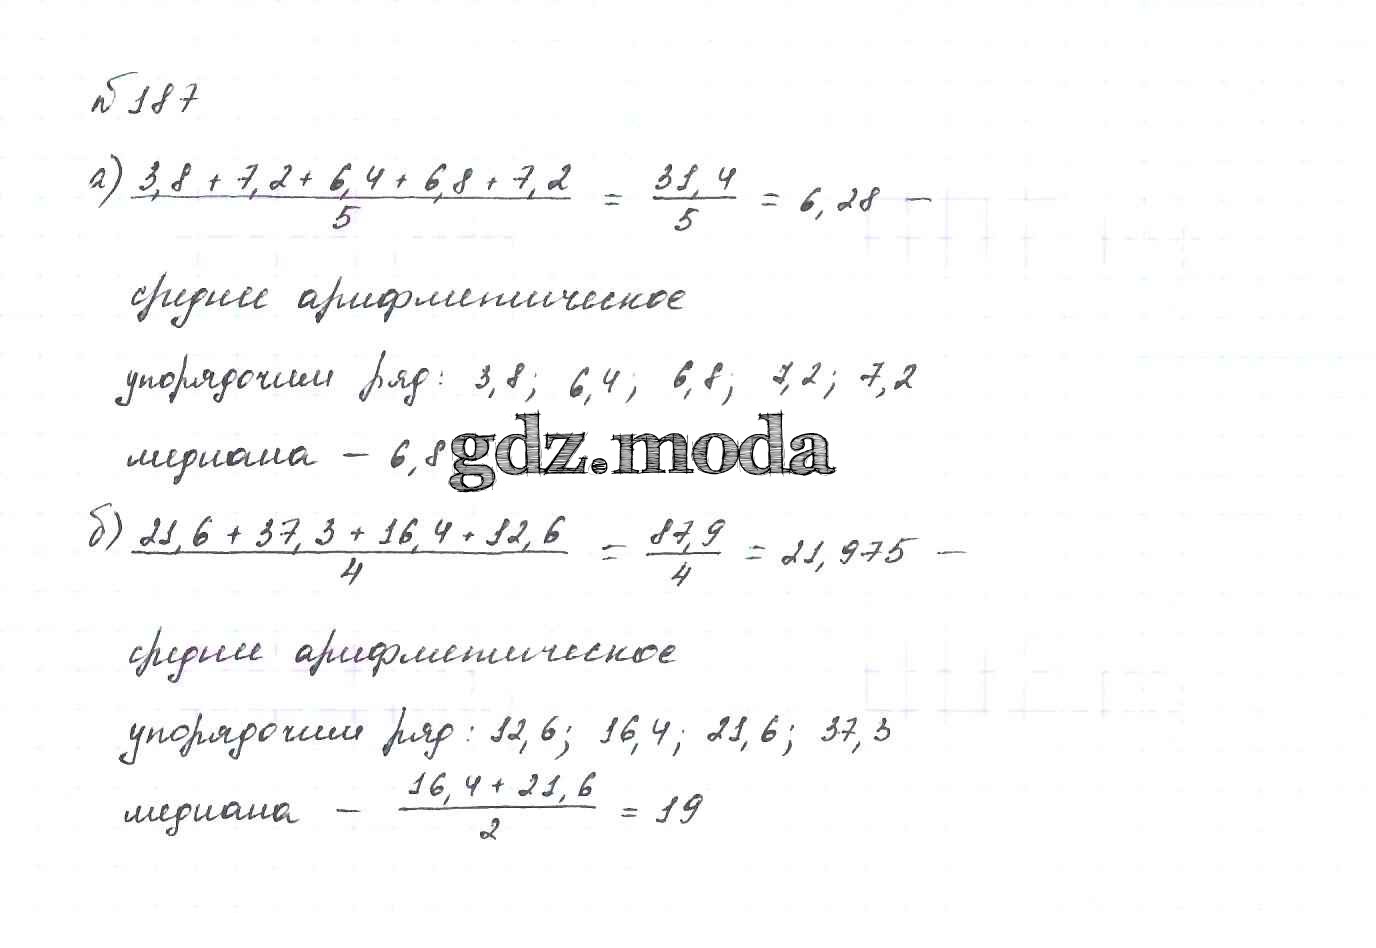 №187
а) (3,8 + 7,2 + 6,4 + 6,8 + 7,2)/5 = 31,4/5 = 6,28 —
среднее арифметическое
упорядочим ряд: 3,8; 6,4; 6,8; 7,2; 7,2
медиана — 6,8
gdz.moda
б) (21,6 + 37,3 + 16,4 + 12,6)/4 = 87,9/4 = 21,975 —
среднее арифметическое
упорядочим ряд: 12,6; 16,4; 21,6; 37,3
медиана — (16,4 + 21,6)/2 = 19